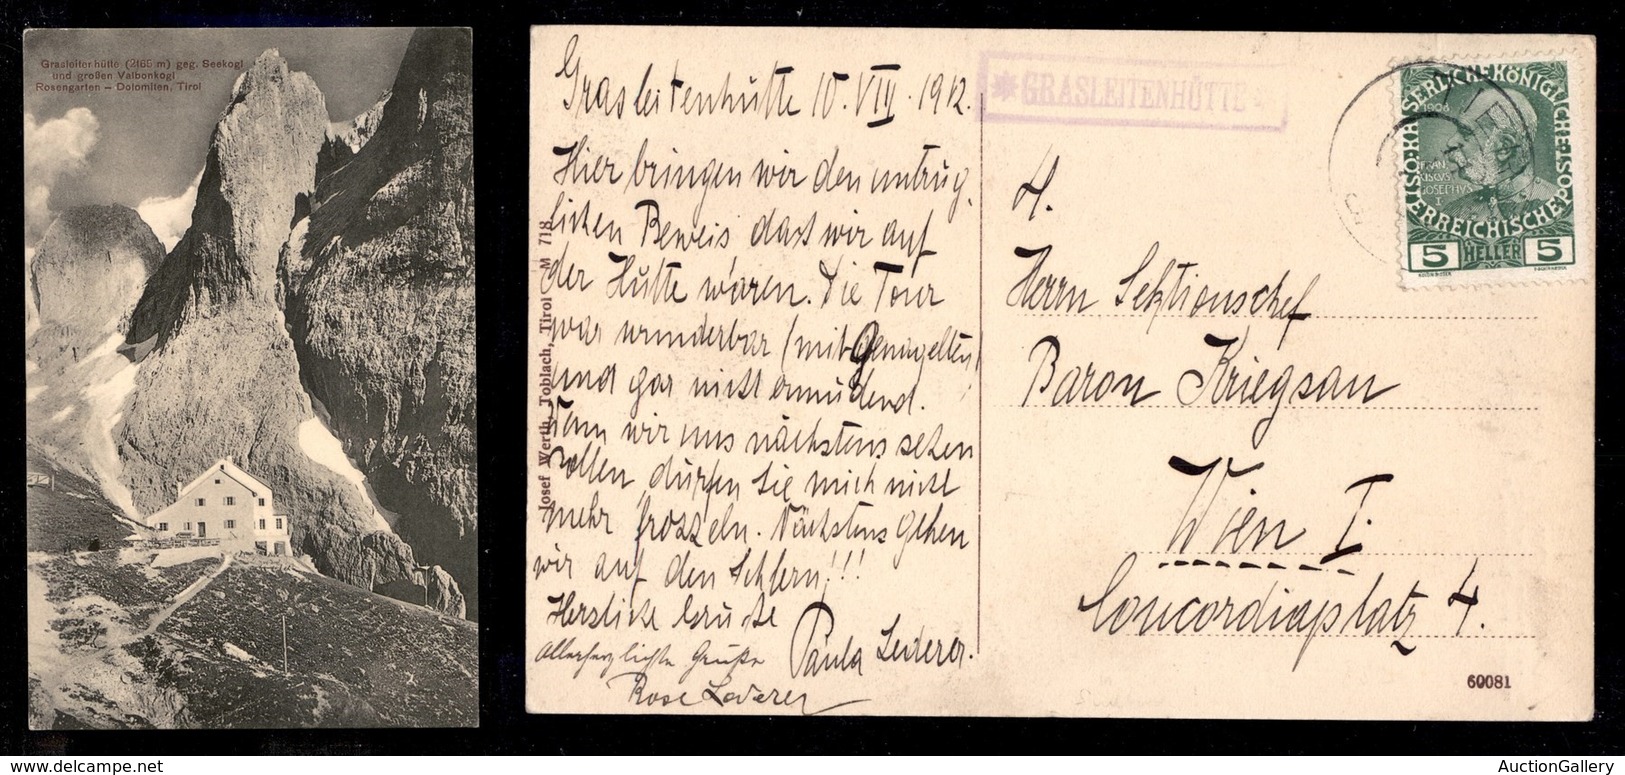 Grasleitenhütte (2165 m) geg. Seekogl
und großen Valbonkogl
Rosengarten – Dolomiten, Tirol
Grasleitenhütte 10.VIII.1912.
Hier bringen wir den untrüg-
lichen Beweis dass wir auf
der Hütte waren. Die Tour
war wunderbar (mit Genagelten)
und gar nicht ermüdend.
Wenn wir uns nächstens sehen
sollen, dürfen Sie mich nicht
mehr frozzeln. Nächstens gehen
wir auf den Schlern!!!
Herzliche Grüße
Paula Lederer.
Allerherzlichste Grüße
Rose Lederer
Josef Werth, Toblach, Tirol M 718
GRASLEITENHÜTTE
KAISERLICHE KÖNIGLICHE ÖSTERREICHISCHE
1908
FRAN
CISCVS
IOSEPHVS
I
5 HELLER 5
WIEN
Herrn Sektionschef
Baron Kriegsau
Wien I.
Concordiaplatz 4.
60081
AuctionGallery